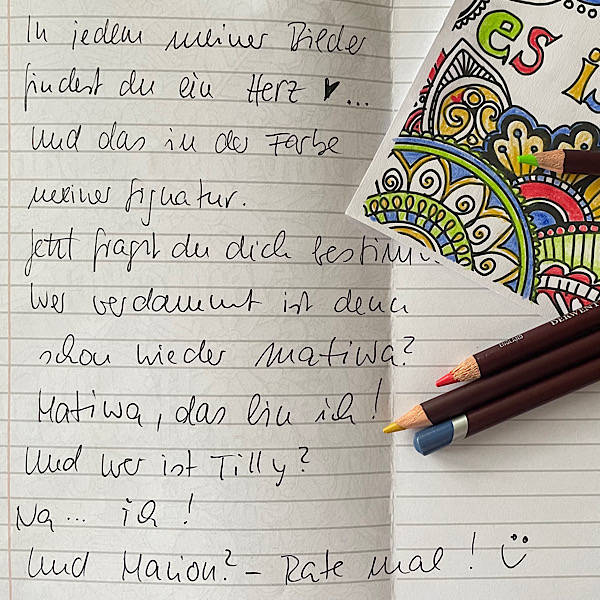 In jedem meiner Bilder
findest du ein Herz ♥...
und das in der Farbe
meiner Signatur.
Jetzt fragst du dich bestimm
wer verdammt ist denn
schon wieder matiwa?
Matiwa, das bin ich!
Und wer ist Tilly?
Na... ich!
Und Marion? - Rate mal!
es is
DERWENT